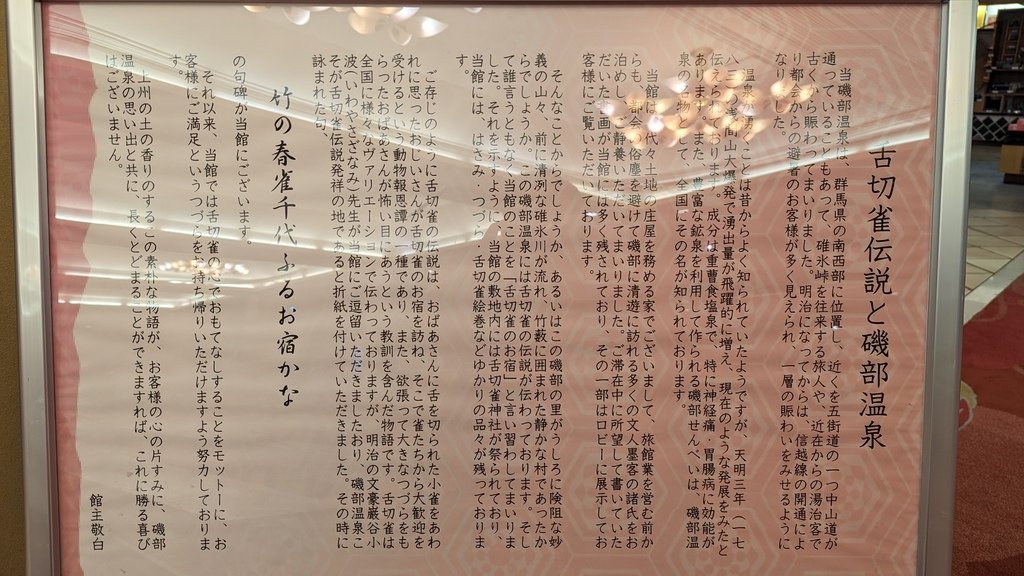 舌切雀伝説と磯部温泉
当磯部温泉は、群馬県の南西部に位置し、近くを五街道の一つ中山道が
通っていることもあって、碓氷峠を往来する旅人や、近在からの湯治客で
古くから賑わってまいりました。明治になってからは、信越線の開通によ
り都会からの避暑のお客様が多く見えられ、一層の賑わいをみせるように
なりました。
温泉が湧くことは昔からよく知られていたようですが、天明三年（一七
八三）の浅間山大爆発で湧出量が飛躍的に増え、現在のような発展をみたと
伝えられております。成分は重曹食塩泉で、特に神経痛・胃腸病に効能が
あります。また、豊富な鉱泉を利用して作られる磯部せんべいは、磯部温
泉の名物として、全国にその名が知られております。
当館は、代々土地の庄屋を務める家でございまして、旅館業を営む前か
らも、都会の俗塵を避けて磯部に清遊に訪れる多くの文人墨客の諸氏をお
泊めし、ご静養いただいてまいりました。ご滞在中に所望して書いていた
だいた書画が当館には多く残されており、その一部はロビーに展示してお
客様にご覧いただいております。
そんなことからでしょうか、あるいはこの磯部の里がうしろに険阻な妙
義の山々、前に清冽な碓氷川が流れ、竹藪に囲まれた静かな村であったか
らでしょうか、この磯部温泉には舌切雀の伝説が伝わっております。そし
て誰言うともなく当館のことを「舌切雀のお宿」と言い習わしてまいりま
した。それを示すように、当館の敷地内には舌切雀神社が祭られており、
当館には、はさみ・つづら・舌切雀絵巻などゆかりの品々が残っておりま
す。
ご存じのように舌切雀の伝説は、おばあさんに舌を切られた小雀をあわ
れに思ったおじいさんが舌切雀のお宿を訪ね、そこで雀たちから大歓迎を
受けるという、動物報恩譚の一種であり、また、欲張って大きなつづらをも
らったおばあさんが怖い目にあうという教訓を含んだ物語です。舌切雀は
全国に様々なヴァリエーションで伝わっておりますが、明治の文豪巌谷小
波（いわやさざなみ）先生が当館にご逗留いただきましたおり、磯部温泉こ
そが舌切雀伝説発祥の地であると折紙を付けていただきました。その時に
詠まれた句、
竹の春雀千代ふるお宿かな
の句碑が当館にございます。
それ以来、当館では舌切雀の心でおもてなしすることをモットーに、お
客様にご満足というつづらをお持ち帰りいただけますよう努力しておりま
す。
上州の土の香りのするこの素朴な物語が、お客様の心の片すみに、磯部
温泉の思い出と共に、長くとどまることができますれば、これに勝る喜び
はございません。
館主敬白